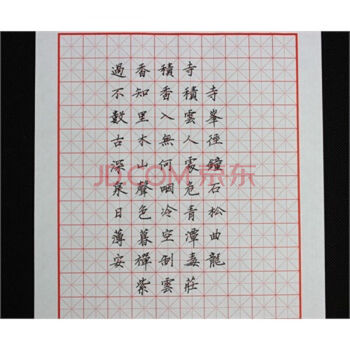 過香積寺
不知香積寺
數里入雲峯
古木無人徑
深山何處鐘
泉聲咽危石
日色冷青松
薄暮空潭曲
安禪倒毒龍
紫雲莊
JD.COM 京东